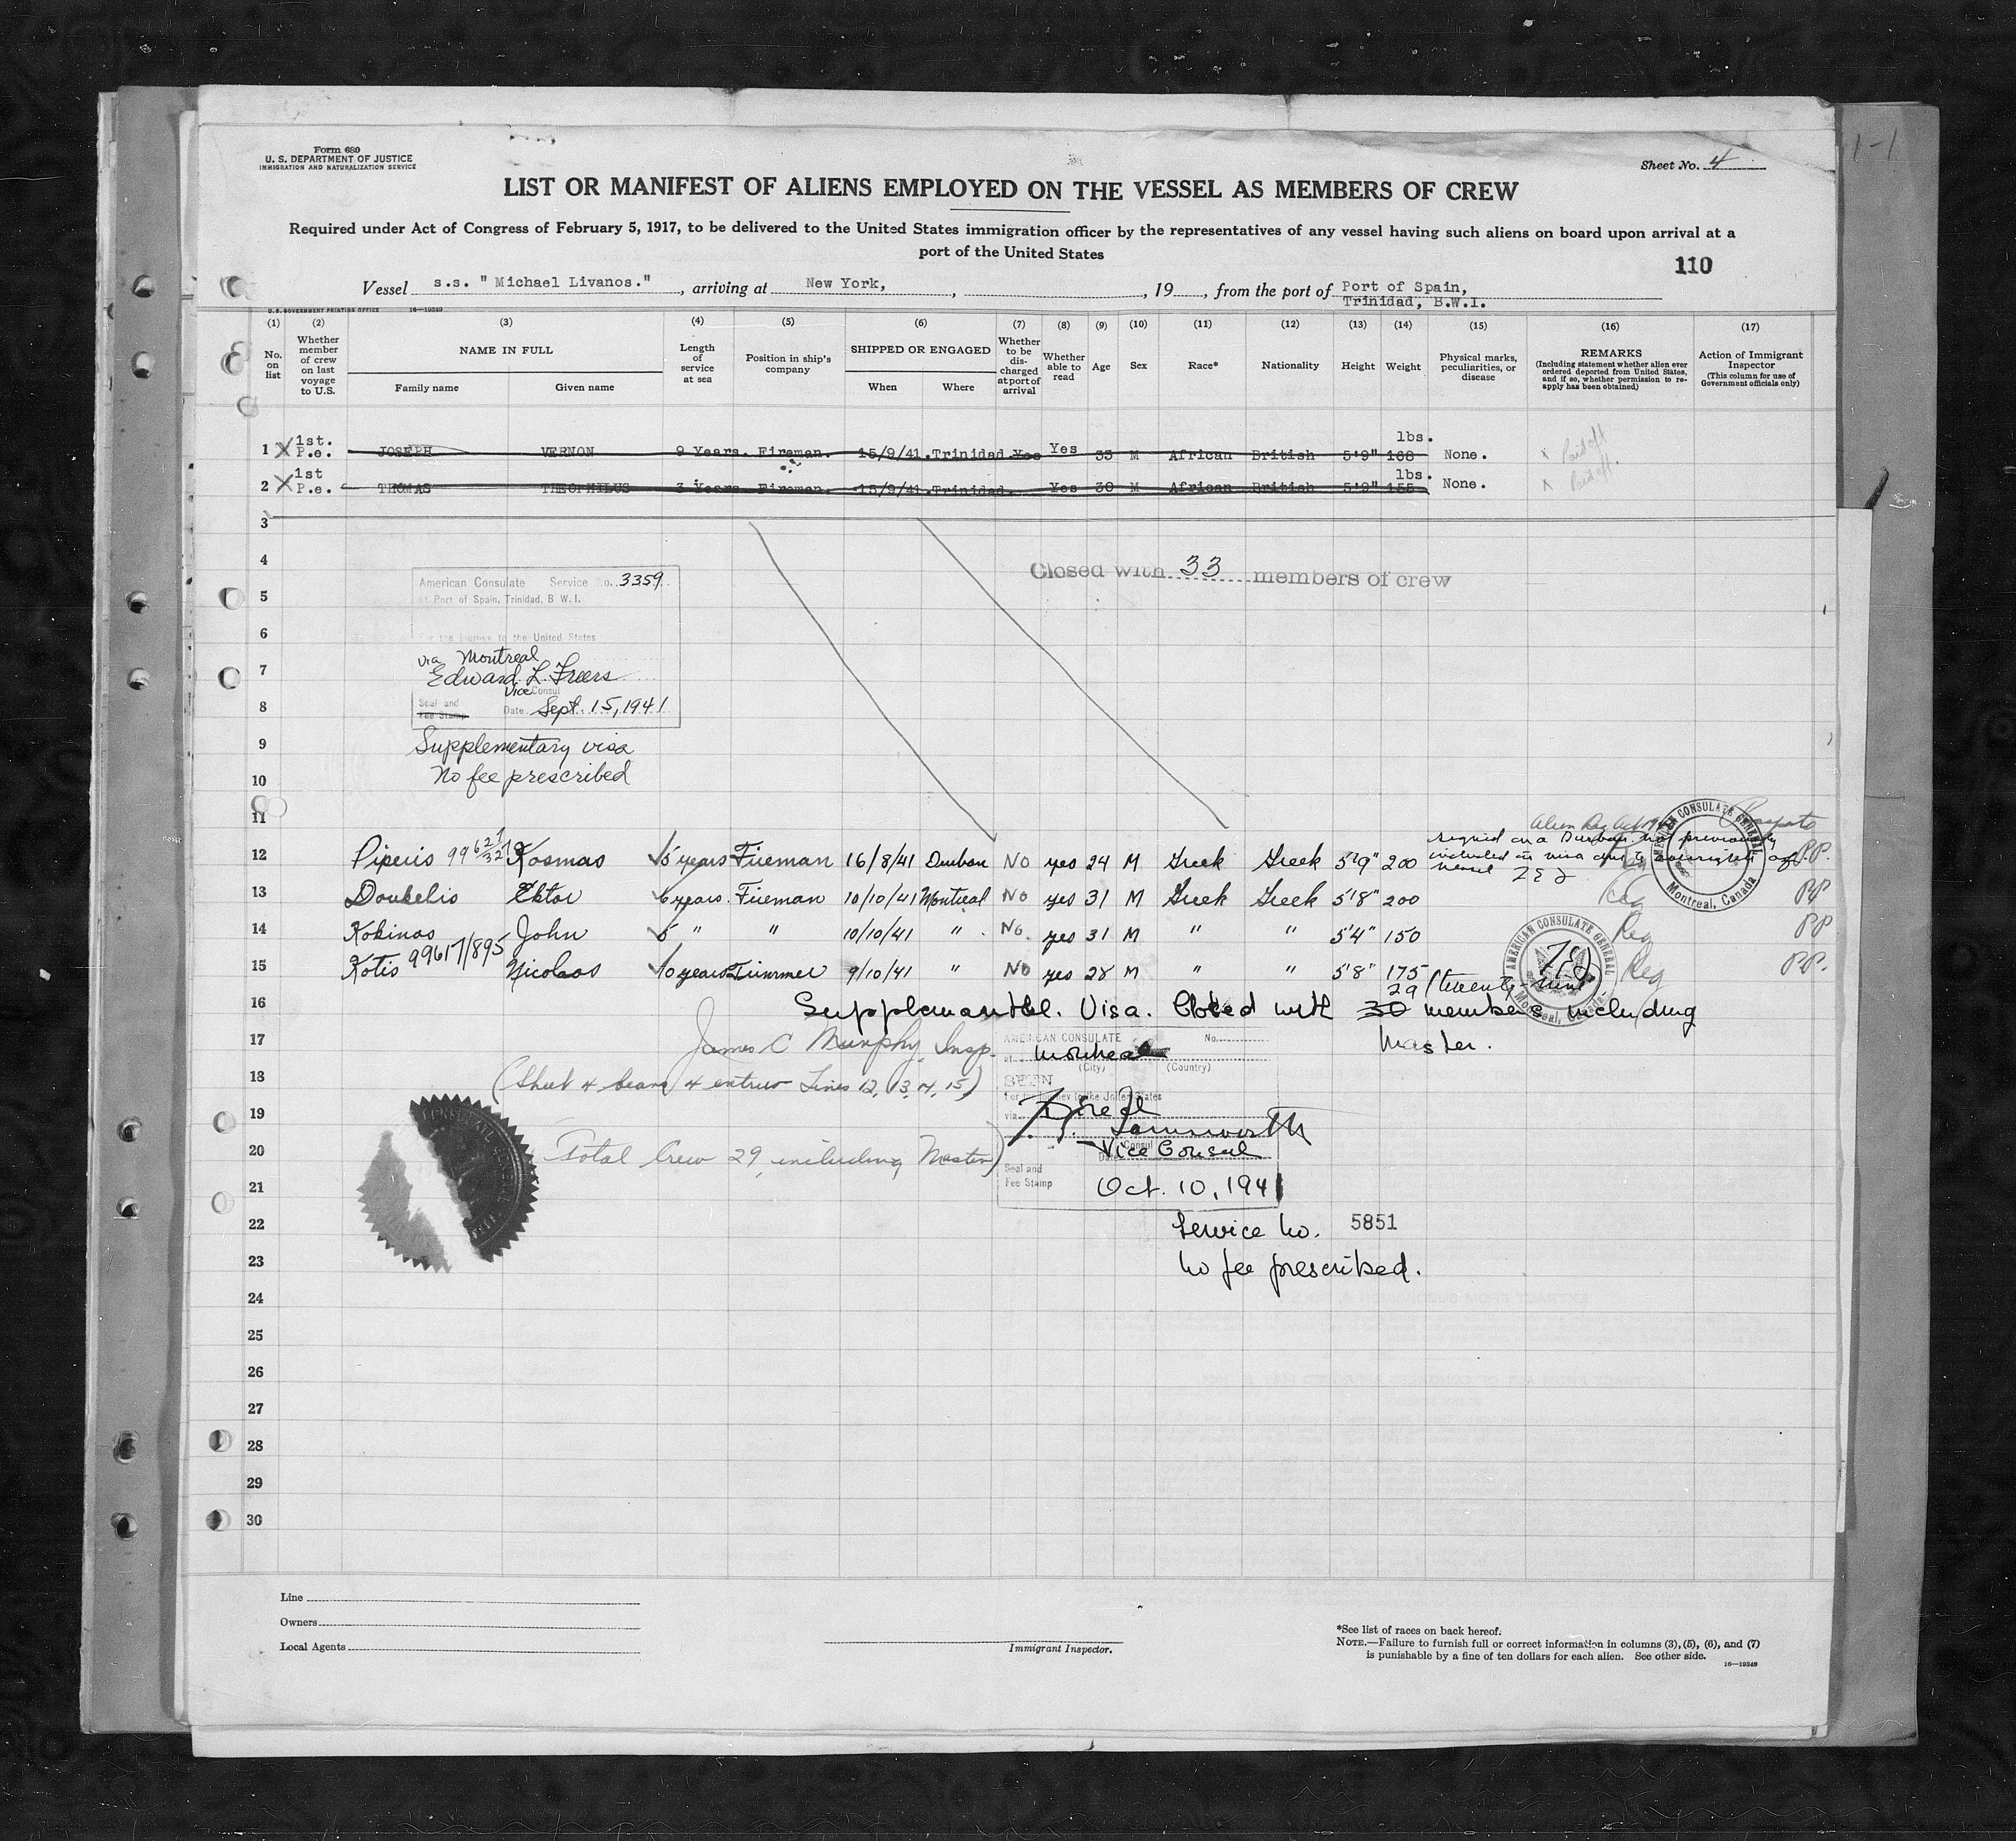 1-1
Form 680
U. S. DEPARTMENT OF JUSTICE
IMMIGRATION AND NATURALIZATION SERVICE
Sheet No. 4
LIST OR MANIFEST OF ALIENS EMPLOYED ON THE VESSEL AS MEMBERS OF CREW
Required under Act of Congress of February 5, 1917, to be delivered to the United States immigration officer by the representatives of any vessel having such aliens on board upon arrival at a
port of the United States
110
Vessel s.s. " Michael Livanos." , arriving at New York, , , 19 , from the port of Port of Spain,
Trinidad, B.W.I.
U. S. GOVERNMENT PRINTING OFFICE 16—19349
(1) (2) (3) (4) (5) (6) (7) (8) (9) (10) (11) (12) (13) (14) (15) (16) (17)
No. on list
Whether member of crew on last voyage to U.S.
NAME IN FULL
Family name Given name
Length of service at sea
Position in ship's company
SHIPPED OR ENGAGED
When Where
Whether to be discharged at port of arrival
Whether able to read
Age
Sex
Race*
Nationality
Height
Weight
Physical marks, peculiarities, or disease
REMARKS
(Including statement whether alien ever ordered deported from United States, and if so, whether permission to reapply has been obtained)
Action of Immigrant Inspector
(This column for use of Government officials only)
1 X 1st. P.e. JOSEPH VERNON 9 Years. Fireman. 15/9/41. Trinidad Yes Yes 35 M African British 5'9" 168 lbs. None. x Paid off
2 X 1st P.e. THOMAS THEOPHILUS 3 Years Fireman. 15/9/41. Trinidad. Yes 30 M African British 5'9" 155 lbs. None. x Paid off.
3
4
Closed with 33 members of crew
American Consulate Service No. 3359
5
at Port of Spain, Trinidad, B W. I.
6
For the journey to the United States
via Montreal
7
Edward L. Freers
Vice Consul
8
Seal and Fee Stamp Date Sept. 15, 1941
9
Supplementary visa
No fee prescribed
10
11
AMERICAN CONSULATE GENERAL
Montreal, Canada
signed on a Durban not previously
included in visa due to oversight of
vessel
12 Piperis Kosmas 5 years Fireman 16/8/41 Durban No yes 24 M Greek Greek 5'9" 200 PP.
13 Doukelis Ektor 6 years. Fireman 10/10/41 Montreal No yes 31 M Greek Greek 5'8" 200 Reg PP
14 Kokinos John 5 " " 10/10/41 " No. yes 31 M " " 5'4" 150 Reg PP
15 Kotis 99617/895 Nicolaos 10 years Trimmer 9/10/41 " No yes 28 M " " 5'8" 175 Reg PP.
AMERICAN CONSULATE GENERAL
Montreal, Canada
29 (twenty-nine)
16 Supplemental. Visa. Closed with 30 members including
Master.
17
James C Murphy Insp.
AMERICAN CONSULATE No.
Montreal
(City) (Country)
18
(Sheet 4 bears 4 entries Lines 12, 13, 14, 15)
SEEN
For the journey to the United States
19
via Direct
Vice Consul
20
Total Crew 29, including Master)
Seal and
Fee Stamp
21
Oct. 10, 1941
22
Service No. 5851
23
No fee prescribed.
24
25
26
27
28
29
30
Line
Owners
Local Agents
Immigrant Inspector.
*See list of races on back hereof.
NOTE.—Failure to furnish full or correct information in columns (3), (5), (6), and (7)
is punishable by a fine of ten dollars for each alien. See other side.
16—19349